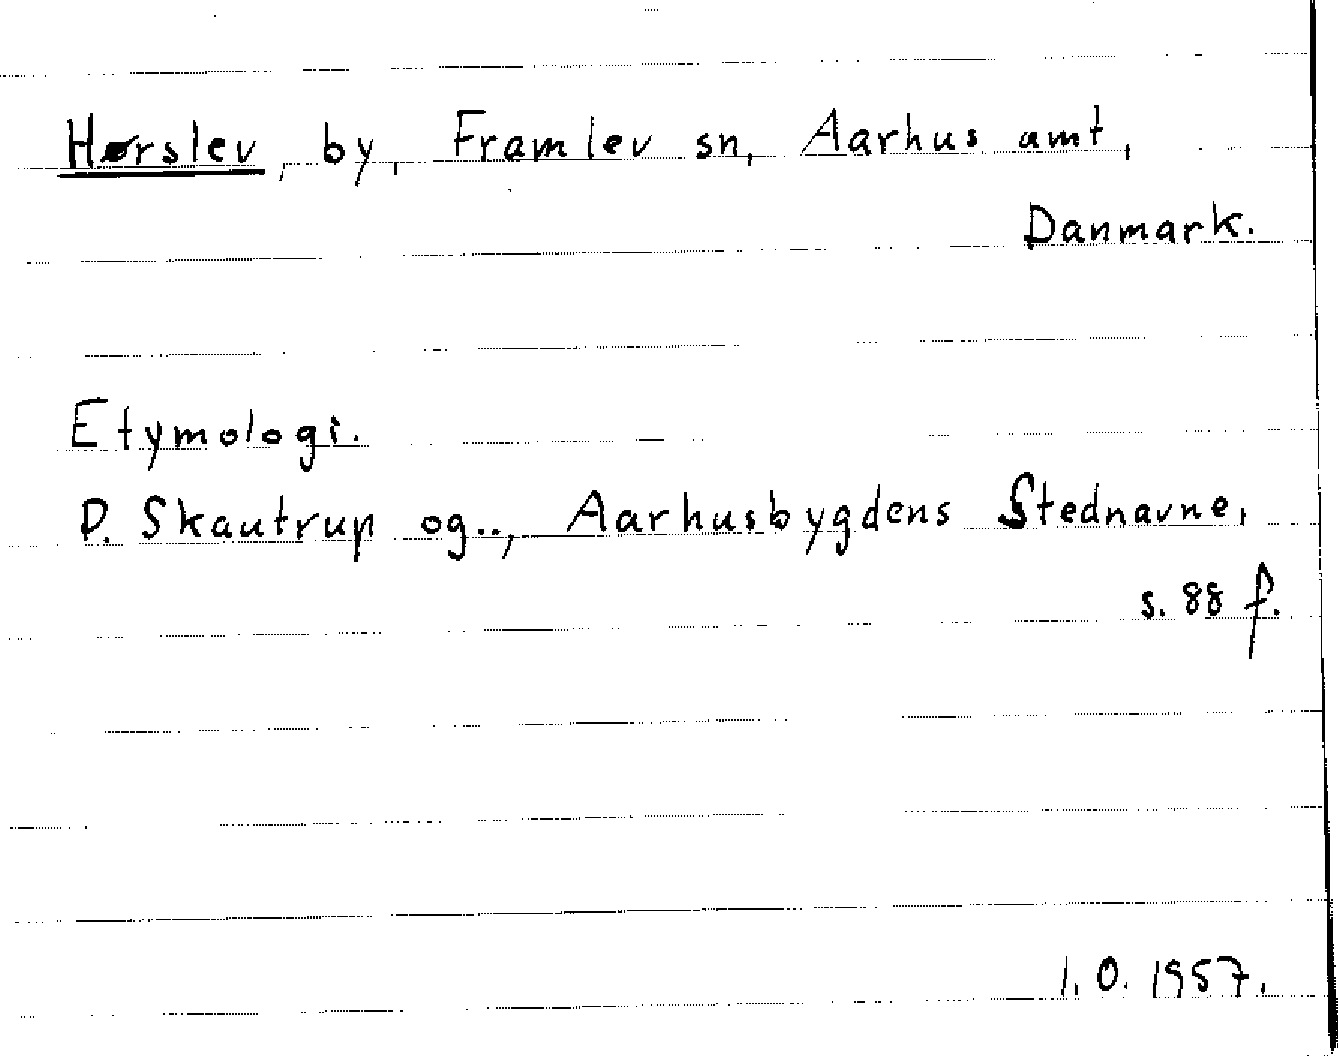 Hørslev, by, Framlev sn, Aarhus amt,
Danmark.
Etymologi.
P. Skautrup og.., Aarhusbygdens Stednavne,
s. 88 f.
I. O. 1957.